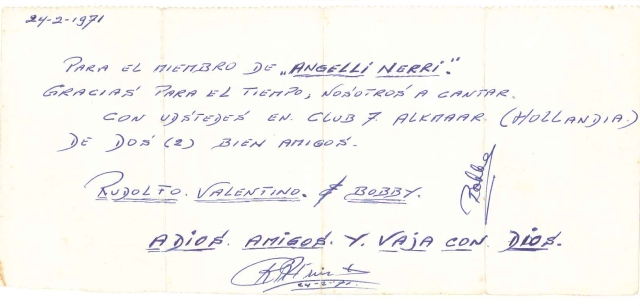 24-2-1971
PARA EL MIEMBRO DE „ANGELLI NERRI."
GRACIAS PARA EL TIEMPO, NOSOTROS A CANTAR.
CON UDSTEDES EN CLUB 7. ALKMAAR. (HOLLANDIA.)
DE DOS (2) BIEN AMIGOS.
RUDOLTO. VALENTINO. & BOBBY.
Bobby
ADIOS. AMIGOS. Y. VAJA CON. DIOS.
24-2-71.